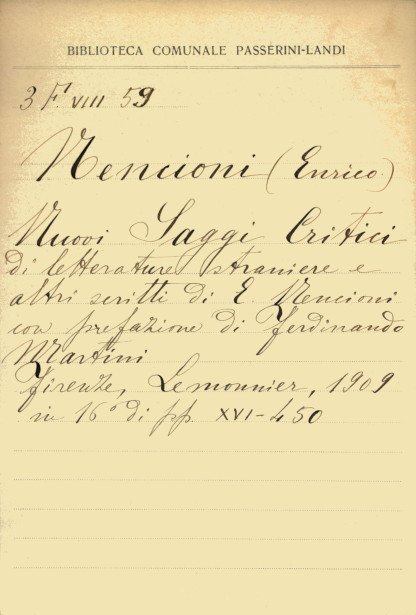 BIBLIOTECA COMUNALE PASSERINI-LANDI
3 F¹ VIII 59
Nencioni (Enrico)
Nuovi Saggi Critici
di letterature straniere e
altri scritti di E. Nencioni
con prefazione di Ferdinando
Martini
Firenze, Lemonnier, 1909
in 16° di pp. XVI-450